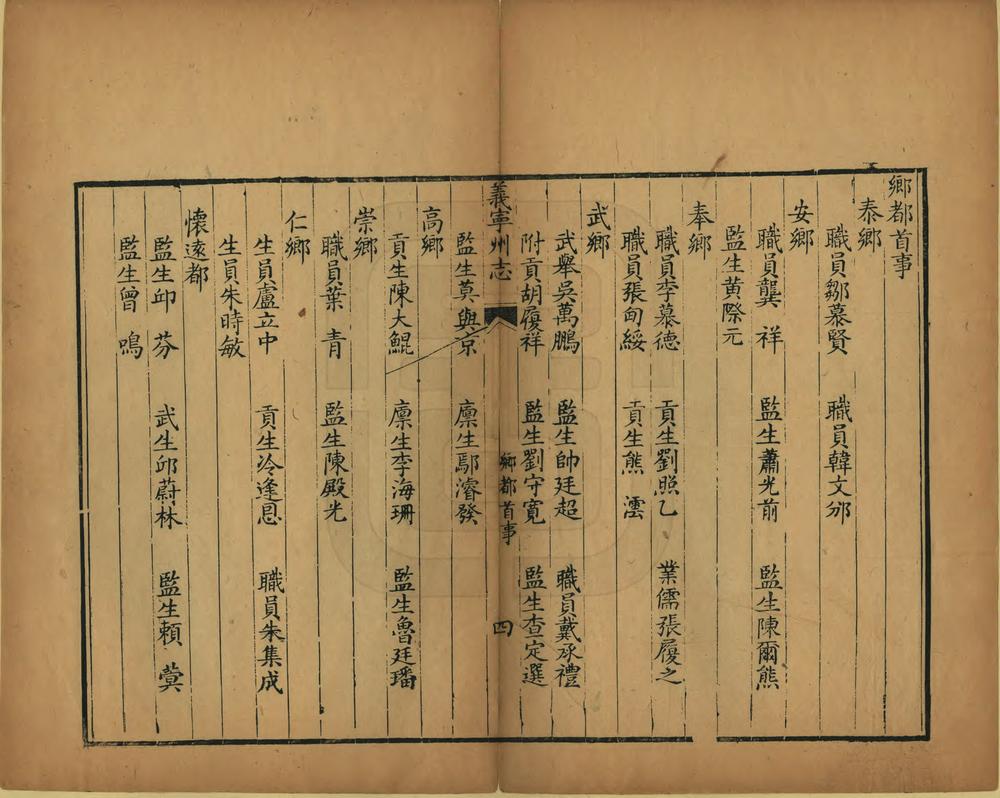 鄉都首事
泰鄉
職員鄒慕賢　職員韓文邠
安鄉
職員龔　祥　監生蕭光前　監生陳爾熊
監生黃際元
奉鄉
職員李慕德　貢生劉照乙　業儒張履之
職員張甸綏　貢生熊　澐
武鄉
武舉吳萬鵬　監生帥廷超　職員戴承禮
附貢胡履祥　監生劉守寬　監生查定選
義寧州志　鄉都首事　四
監生莫與京　廪生鄢濬發
高鄉
貢生陳大鯤　廪生李海珊　監生魯廷璠
崇鄉
職員葉　青　監生陳殿光
仁鄉
生員盧立中　貢生冷逢恩　職員朱集成
生員朱時敏
懷遠都
監生邱　芬　武生邱蔚林　監生賴　蓂
監生曾　鳴